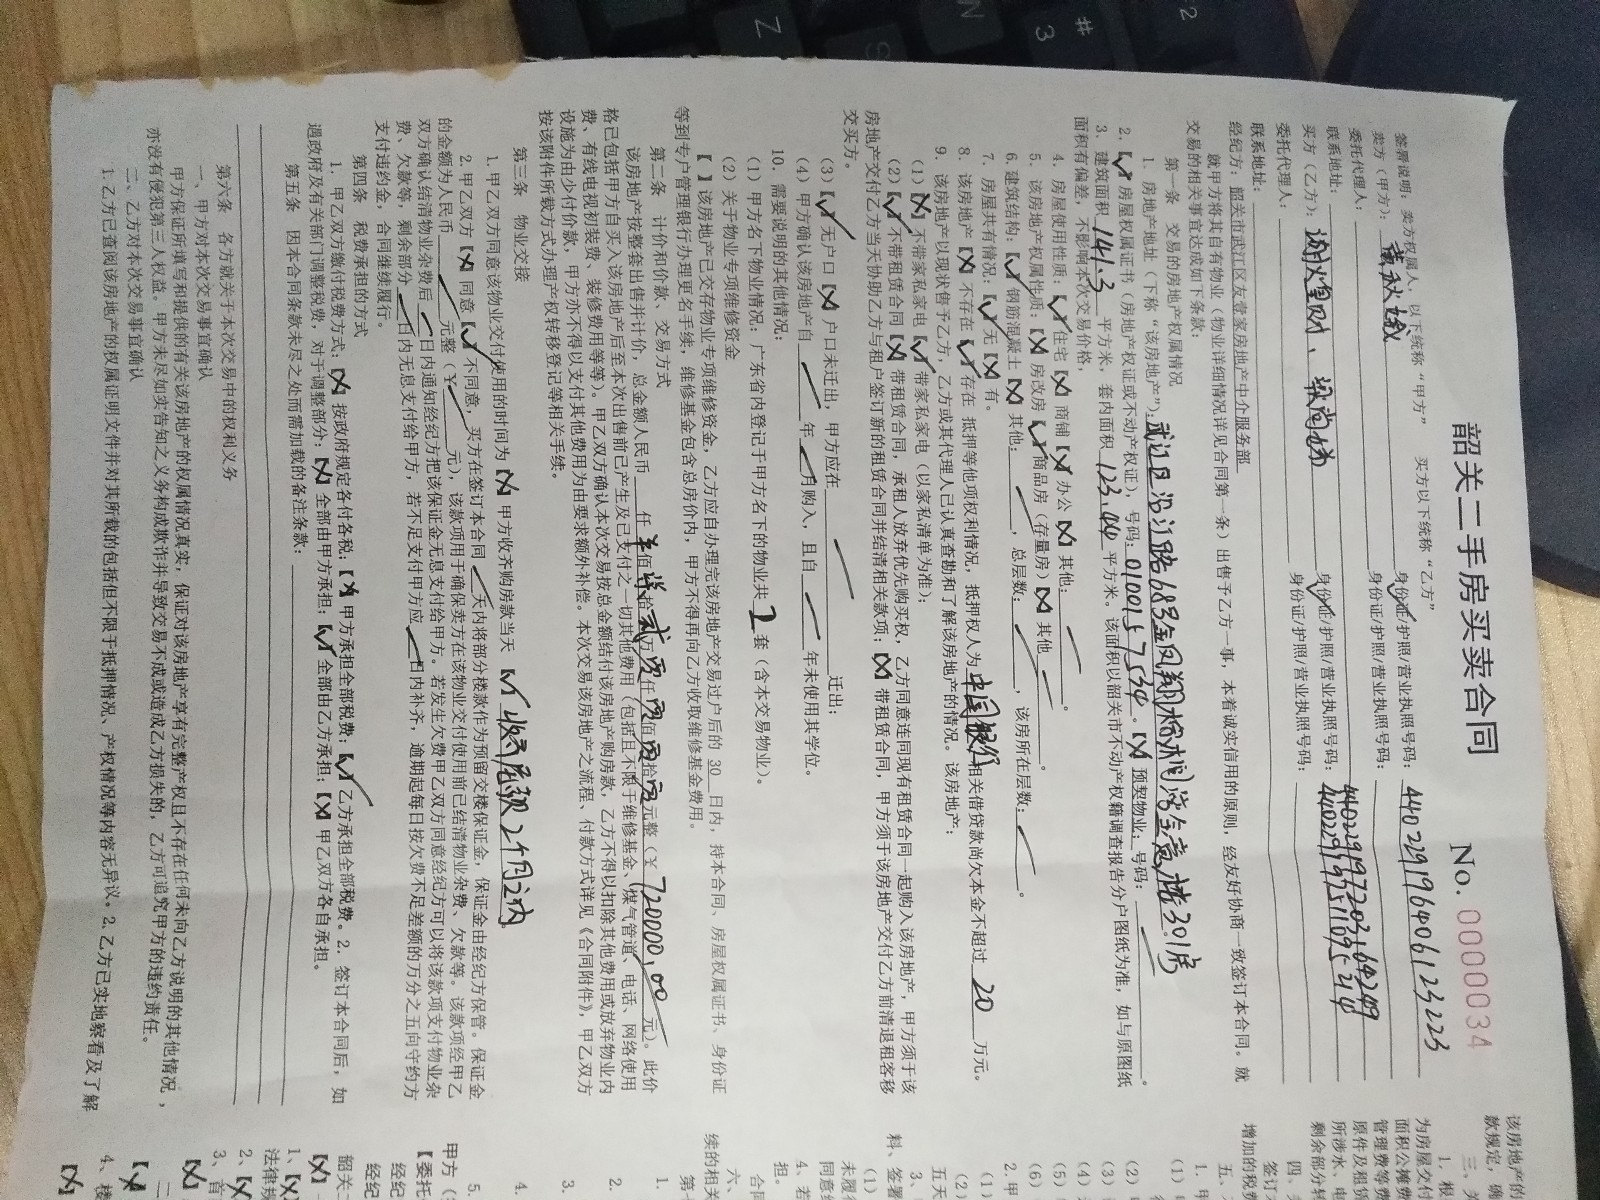 韶关二手房买卖合同
No. 00000034
签署说明：卖方权属人，以下统称“甲方” 买方以下统称“乙方”
卖方（甲方）： 身份证/护照/营业执照号码：440229196406123223
委托代理人： 身份证/护照/营业执照号码：
联系地址：
买方（乙方）： 身份证/护照/营业执照号码：
委托代理人： 身份证/护照/营业执照号码：
联系地址：
经纪方：韶关市武江区友壹家房地产中介服务部
就甲方将其自有物业（物业详细情况详见合同第一条）出售予乙方一事，本着诚实信用的原则，经友好协商一致签订本合同。就
交易的相关事宜达成如下条款：
第一条 交易的房地产权属情况
1. 房地产地址（下称“该房地产”）：武江区沿江路683金凤翔梧桐 301房
2.【✓】房屋权属证书（房地产权证或不动产权证），号码：0100157534。【×】预契物业；号码：
3. 建筑面积 141.3 平方米，套内面积 123.04 平方米。该面积以韶关市不动产权籍调查报告分户图纸为准，如与原图纸
面积有偏差，不影响本次交易价格，
4. 房屋使用性质：【✓】住宅【×】商铺【×】办公【×】其他：
5. 该房地产权属性质：【×】房改房【✓】商品房（存量房）【×】其他
6. 建筑结构：【✓】钢筋混凝土【×】其他： ，总层数： ，该房所在层数： 。
7. 房屋共有情况：【✓】无【×】有。
8. 该房地产【×】不存在【✓】存在 抵押等他项权利情况，抵押权人为中国银行相关借贷款尚欠本金不超过 20 万元。
9. 该房地产以现状售予乙方，乙方或其代理人已认真查勘和了解该房地产的情况。该房地产：
（1）【×】不带家私家电【✓】带家私家电（以家私清单为准）；
（2）【✓】不带租赁合同【×】带租赁合同，承租人放弃优先购买权，乙方同意连同现有租赁合同一起购入该房地产，甲方须于该
房地产交付乙方当天协助乙方与租户签订新的租赁合同并结清相关款项；【×】带租赁合同，甲方须于该房地产交付乙方前清退租客移
交买方。
（3）【✓】无户口【×】户口未迁出，甲方应在 迁出；
（4）甲方确认该房地产自 年 月购入，且自 年未使用其学位。
10. 需要说明的其他情况：
（1）甲方名下物业情况：广东省内登记于甲方名下的物业共 2 套（含本交易物业）。
（2）关于物业专项维修资金
【 】该房地产已交存物业专项维修资金，乙方应自办理完该房地产交易过户后的 30 日内，持本合同、房屋权属证书、身份证
等到专户管理银行办理更名手续，维修基金包含总房价内，甲方不得再向乙方收取维修基金费用。
第二条 计价和价款、交易方式
该房地产按整套出售并计价，总金额人民币 仟 佰 拾贰万 仟 佰 拾 元整（￥720000.00元）。此价
格已包括甲方自买入该房地产后至本次出售前已产生及已支付之一切其他费用（包括且不限于维修基金、煤气管道、电话、网络使用
费、有线电视初装费、装修费用等等）。甲乙双方确认本次交易按总金额结付该房地产购房款，乙方不得以扣除其他费用或放弃物业内
设施为由少付价款，甲方亦不得以支付其他费用为由要求额外补偿。本次交易该房地产之流程、付款方式详见《合同附件》，甲乙双方
按该附件所载方式办理产权转移登记等相关手续。
第三条 物业交接
1. 甲乙双方同意该物业交付使用的时间为【×】甲方收齐购房款当天【✓】收齐房款2个月之内
2. 甲乙双方【×】同意【✓】不同意，买方在签订本合同 天内将部分楼款作为预留交楼保证金，保证金由经纪方保管。保证金
的金额为人民币 元整（￥ 元），该款项用于确保卖方在该物业交付使用前已结清物业杂费、欠款等。该款项经甲乙
双方确认结清物业杂费后 日内通知经纪方把该保证金无息支付给甲方。若发生欠费甲乙双方同意经纪方可以将该款项支付物业杂
费、欠款等，剩余部分 日内无息支付给甲方，若不足支付甲方应 日内补齐，逾期起每日按欠费不足差额的万分之五向守约方
支付违约金，合同继续履行。
第四条 税费承担的方式
1. 甲乙双方缴付税费方式：【×】按政府规定各付各税；【×】甲方承担全部税费；【✓】乙方承担全部税费。2. 签订本合同后，如
遇政府及有关部门调整税费，对于调整部分：【×】全部由甲方承担；【✓】全部由乙方承担；【×】甲乙双方各自承担。
第五条 因本合同条款未尽之处而需加载的备注条款：
第六条 各方就关于本次交易中的权利义务
一、甲方对本次交易事宜确认
甲方保证所填写和提供的有关该房地产的权属情况真实，保证对该房地产享有完整产权且不存在任何未向乙方说明的其他情况，
亦没有侵犯第三人权益。甲方未尽如实告知之义务构成欺诈并导致交易不成或造成乙方损失的，乙方可追究甲方的违约责任。
二、乙方对本次交易事宜确认
1. 乙方已查阅该房地产的权属证明文件并对其所载的包括但不限于抵押情况、产权情况等内容无异议。2. 乙方已实地察看及了解